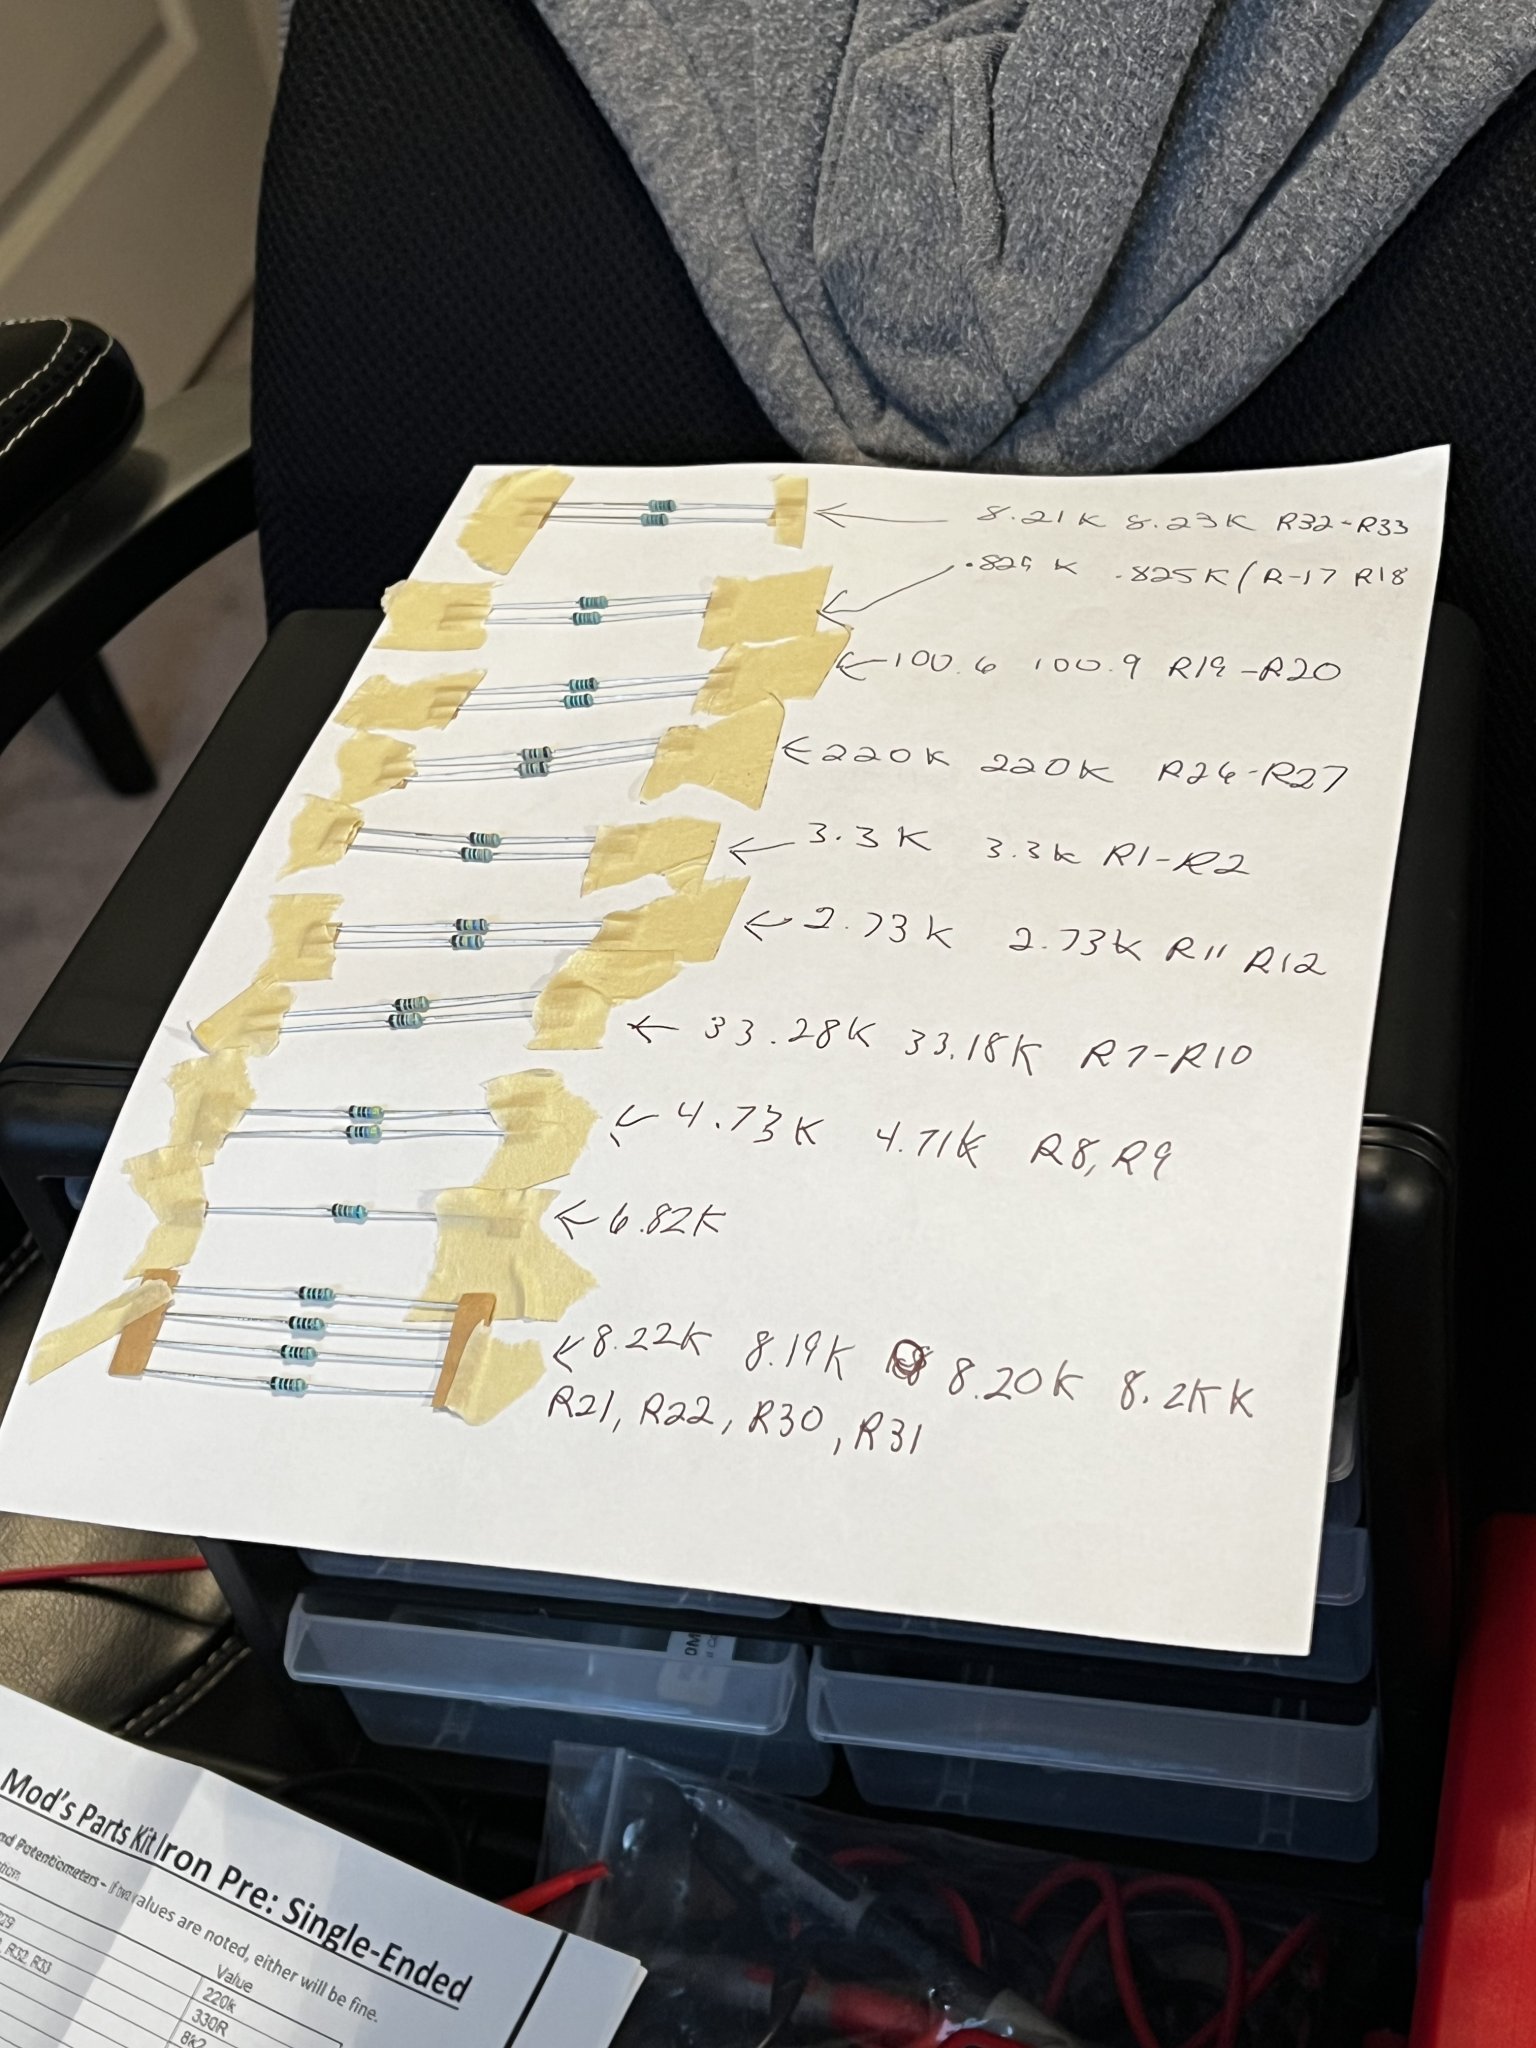 8.21K 8.23K R32-R33
.825K .825K/R-17 R18
100.6 100.9 R19-R20
220K 220K R26-R27
3.3K 3.3K R1-R2
2.73K 2.73K R11 R12
33.28K 33.18K R7-R10
4.73K 4.71K R8, R9
6.82K
8.22K 8.19K 8.20K 8.2KK
R21, R22, R30, R31
Mod's Parts Kit Iron Pre: Single-Ended
Potentiometers - If two values are noted, either will be fine.
Value
220k
R32, R33
330R
8k2